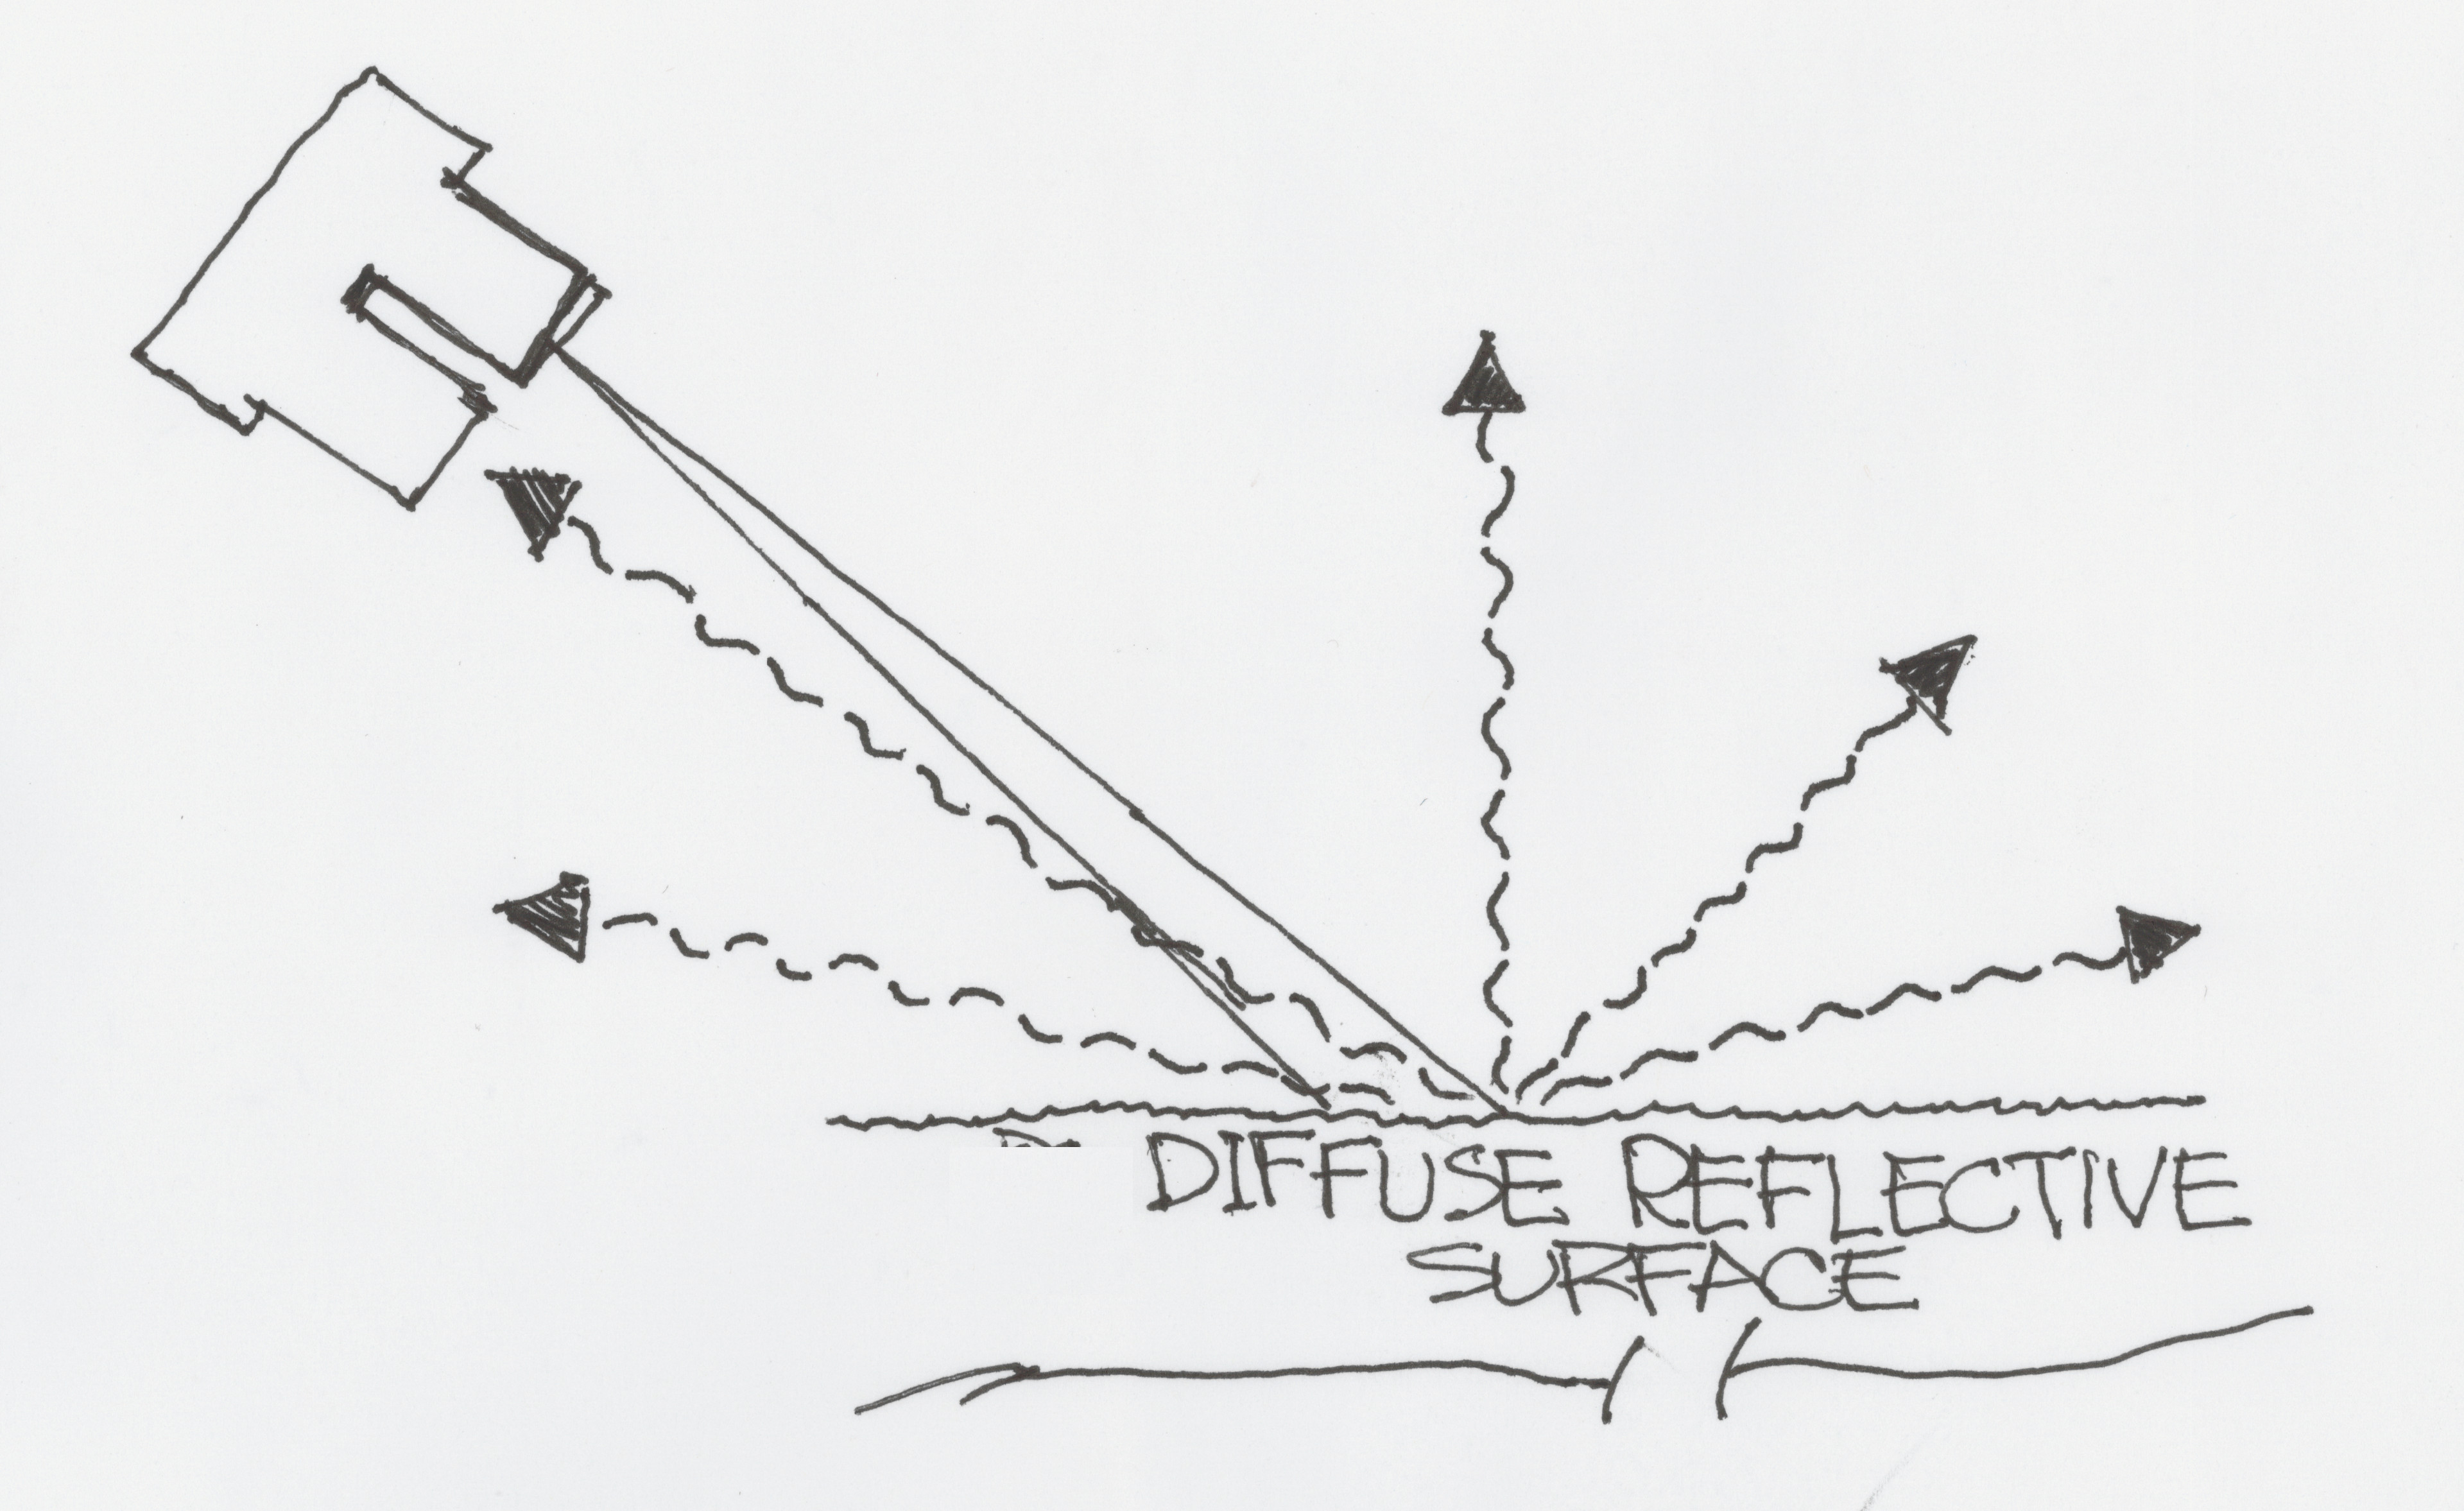 DIFFUSE REFLECTIVE
SURFACE